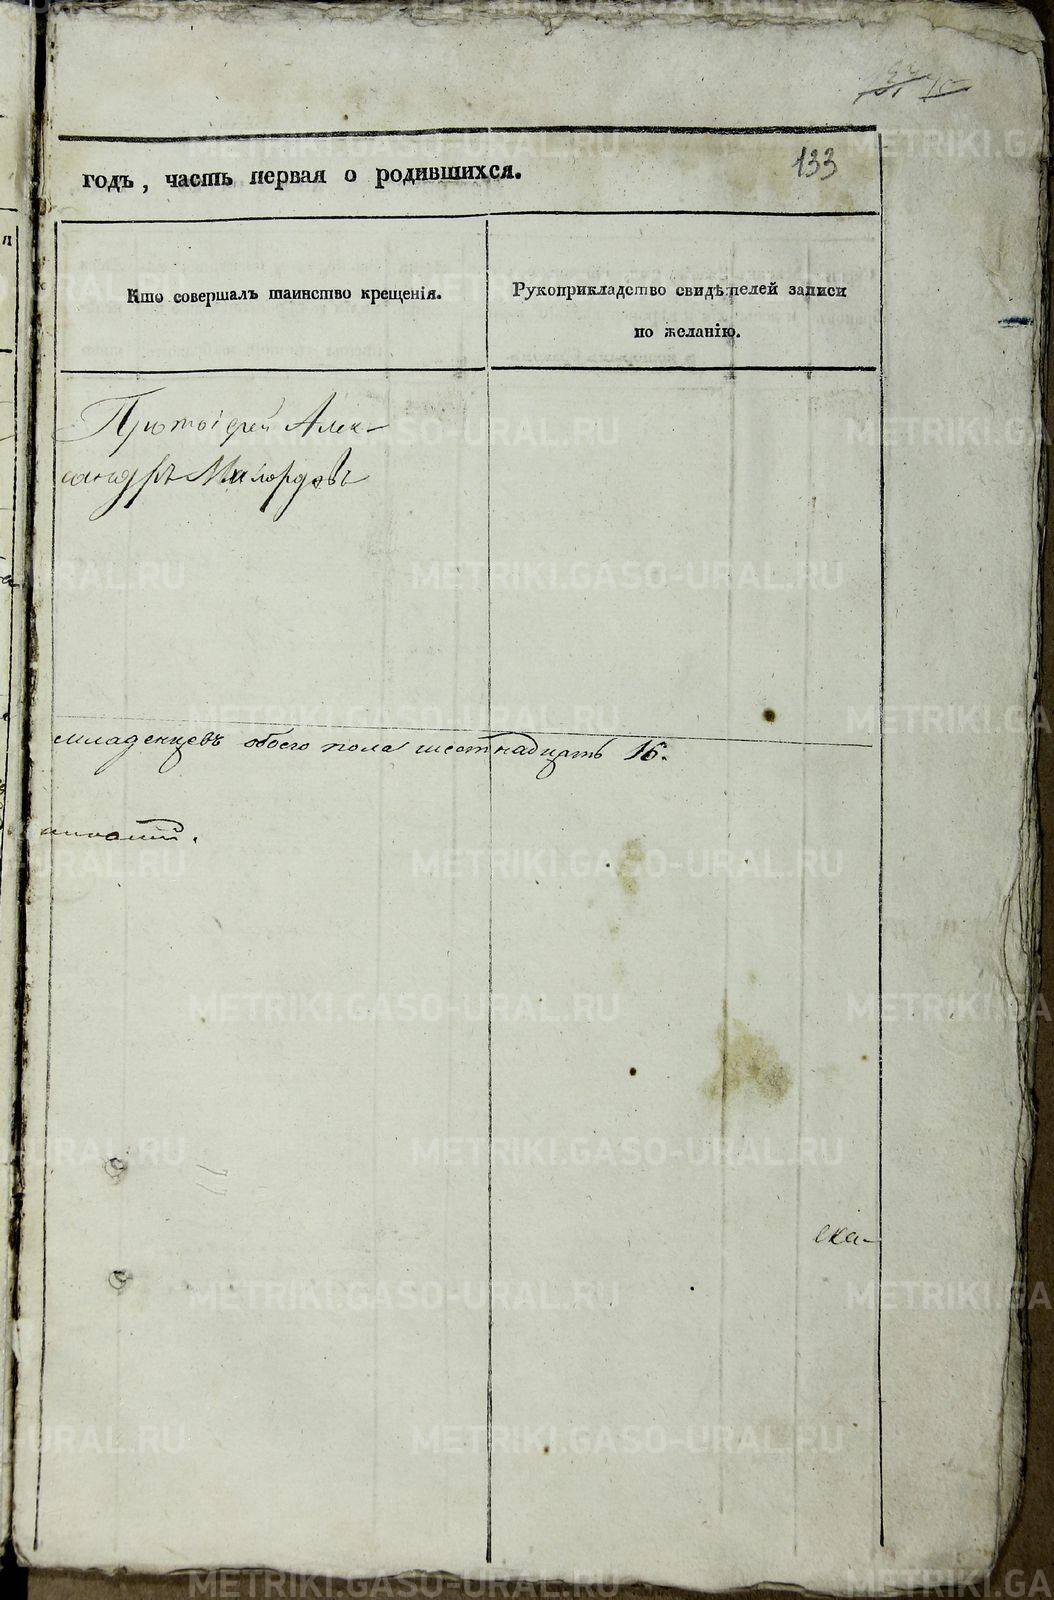 133
годъ, часть первая о родившихся.
Кто совершалъ таинство крещенія.
Рукоприкладство свидѣтелей записи
по желанію.
Протоіерей Алек-
сандръ Милордовъ
младенцевъ обоего пола шестнадцать 16.
ска-
METRIKI.GASO-URAL.RU